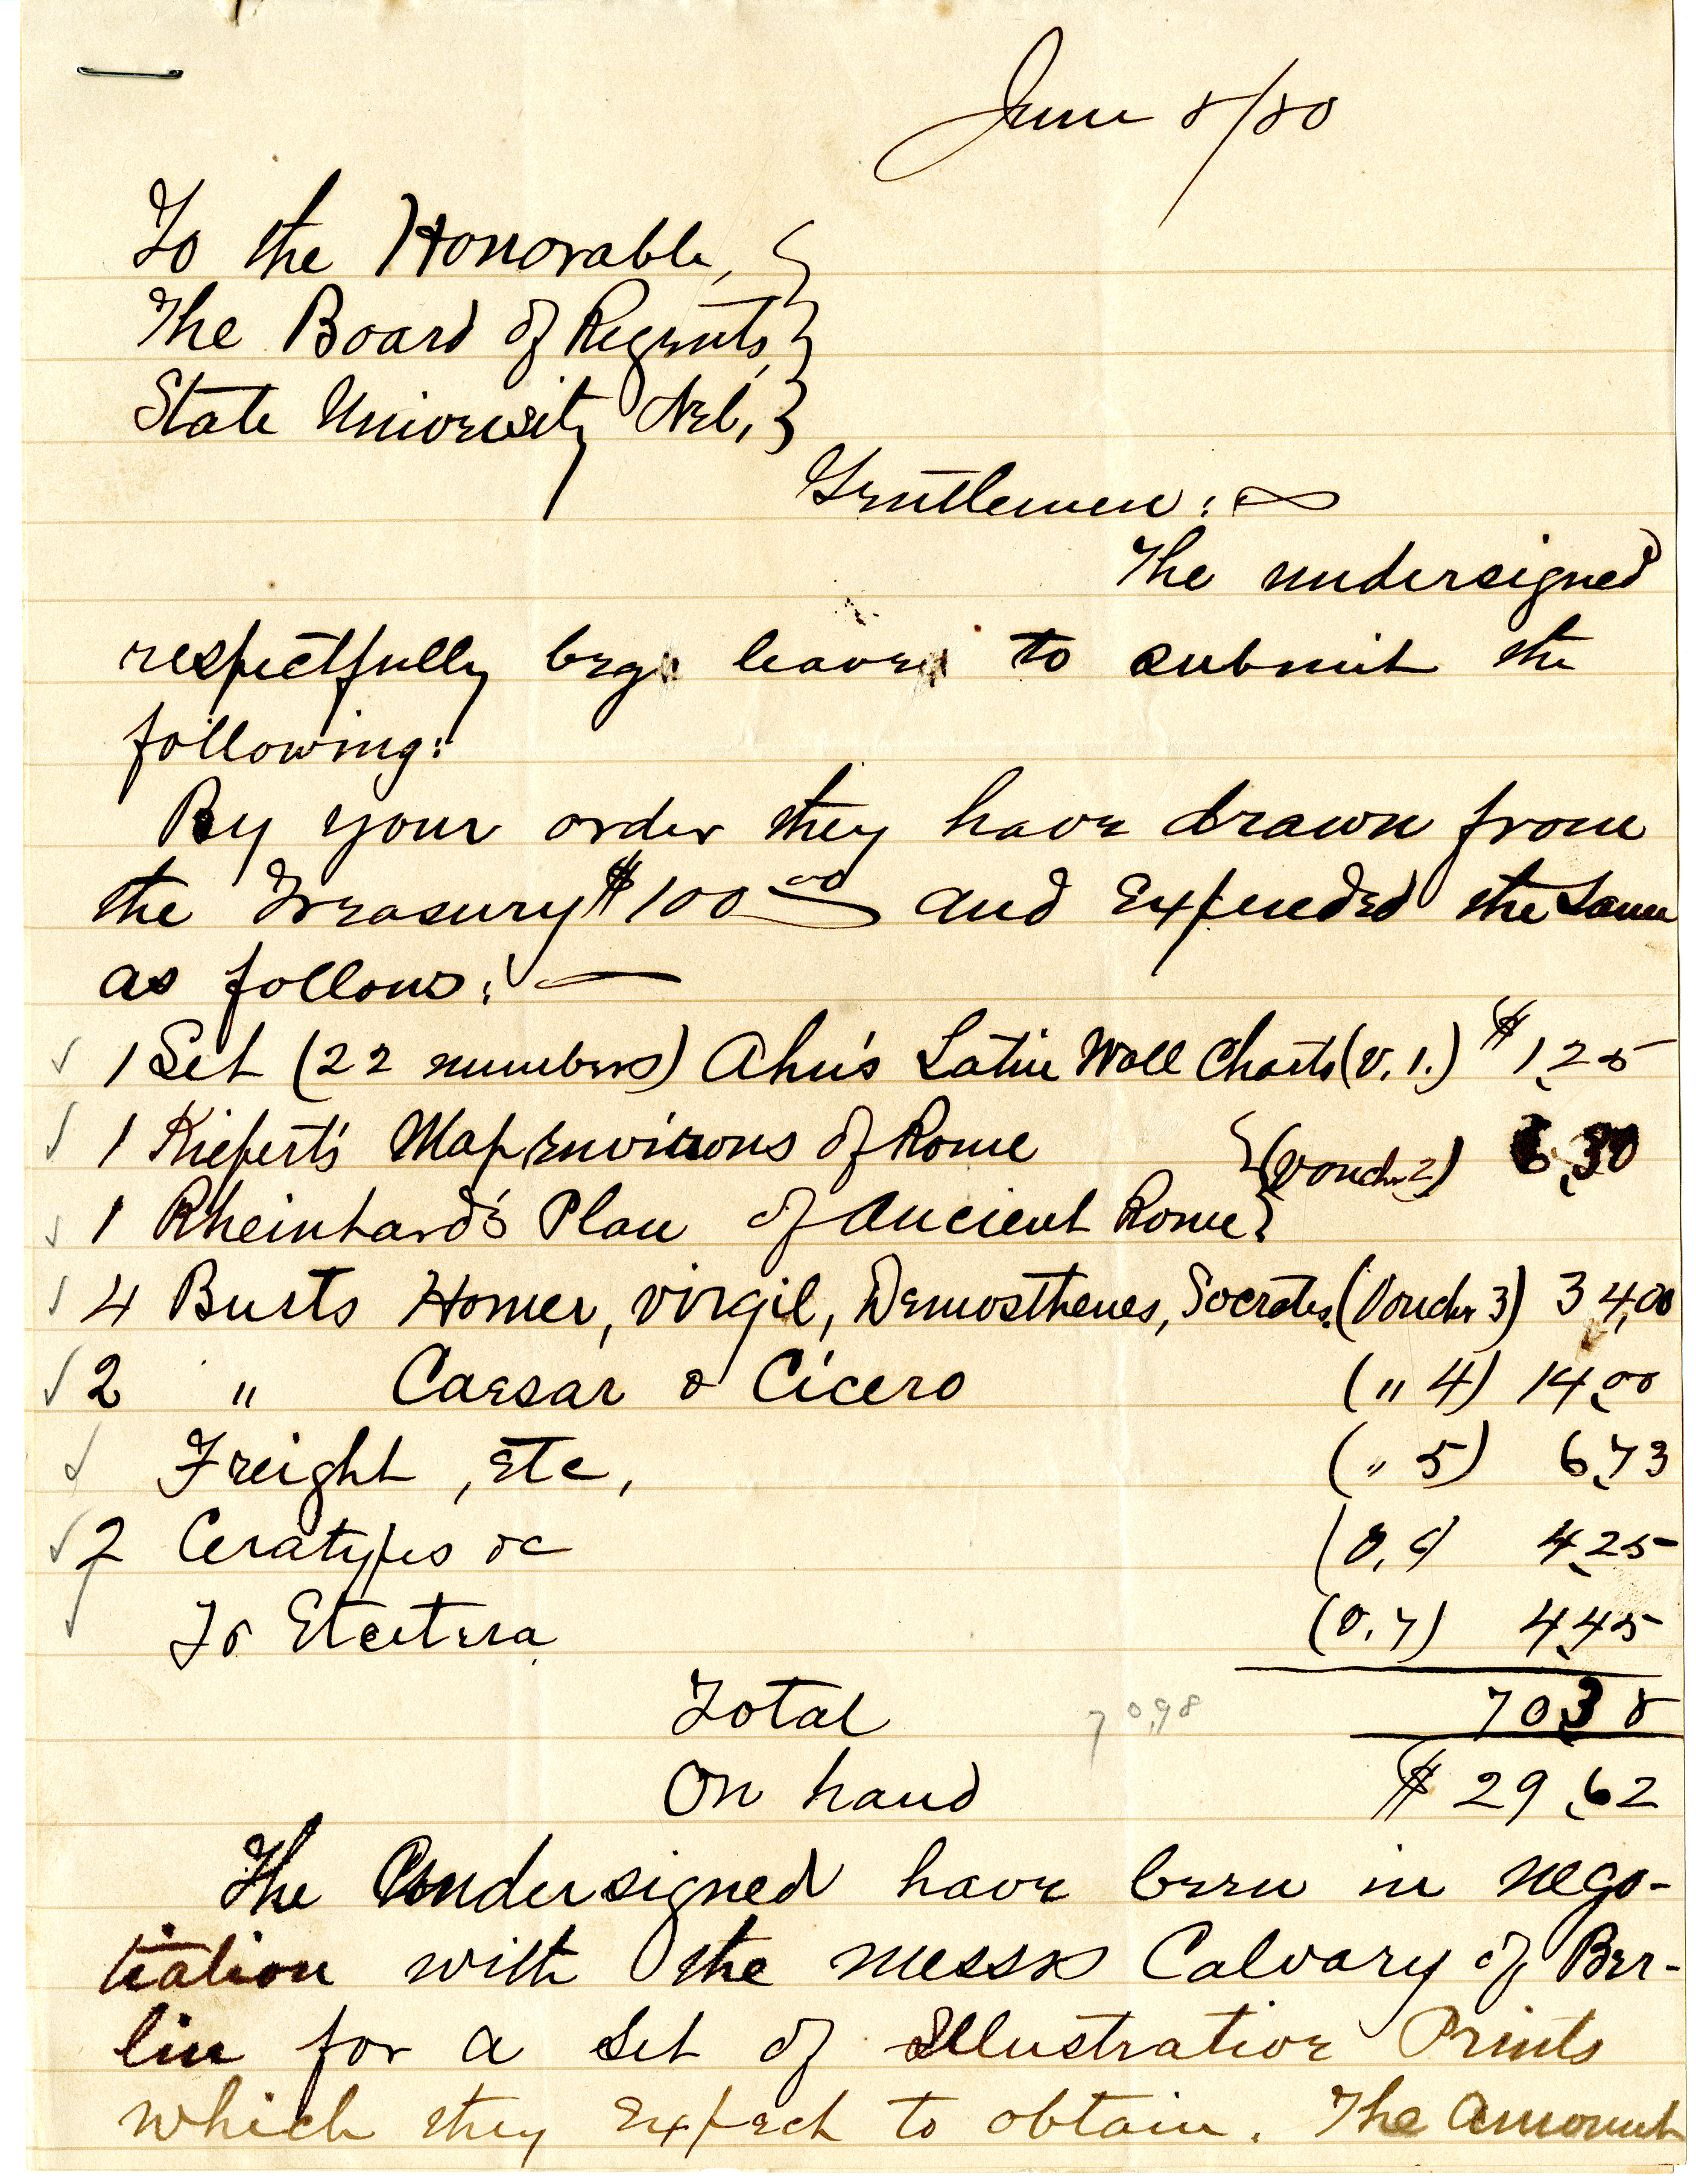 June 8/80
To the Honorable, }
The Board of Regents, }
State University Neb, }
Gentlemen :
The undersigned
respectfully beg leave to submit the
following:
By your order they have drawn from
the Treasury $100 00 and expended the same
as follows: —
1 Set (22 numbers) Ahn's Latin Wall Charts (V. 1.) $ 1,25
1 Kiepert's Map Environs of Rome } (Vouch. 2) 6,30
1 Rheinhard's Plan of Ancient Rome }
4 Busts Homer, Virgil, Demosthenes, Socrates. (Vouchr 3) 34,00
2 " Caesar & Cicero (" 4) 14,00
Freight, etc, (" 5) 6,73
2 Ceratypes &c (V, 6) 4,25
To Etcetera (V. 7) 4,45
Total 70,98 70,38
On hand $ 29,62
The Undersigned have been in nego-
tiation with the messrs Calvary of Ber-
lin for a set of Illustrative Prints
which they expect to obtain. The amount